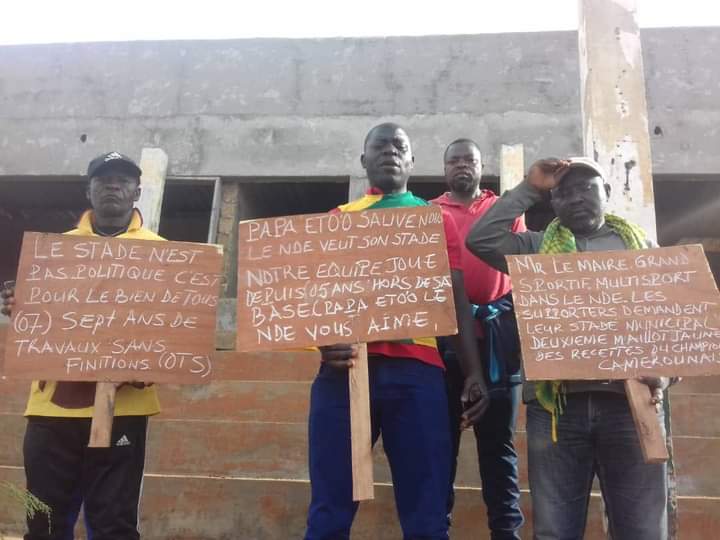 LE STADE N'EST
PAS POLITIQUE C'EST
POUR LE BIEN DE TOUS
(07) SEPT ANS DE
TRAVAUX SANS
FINITIONS (OTS)
PAPA ETO'O SAUVE NOUS
LE NDE VEUT SON STADE
NOTRE EQUIPE JOUE
DEPUIS (05 ANS HORS DE SA
BASE (PAPA ETO'O LE
NDE VOUS AIME.
MR LE MAIRE. GRAND
SPORTIF, MULTISPORT
DANS LE NDE. LES
SUPPORTERS DEMANDENT
LEUR STADE MUNICIPAL
DEUXIEME MAILLOT JAUNE
DES RECETTES DU CHAMPION
CAMEROUNAI
adidas